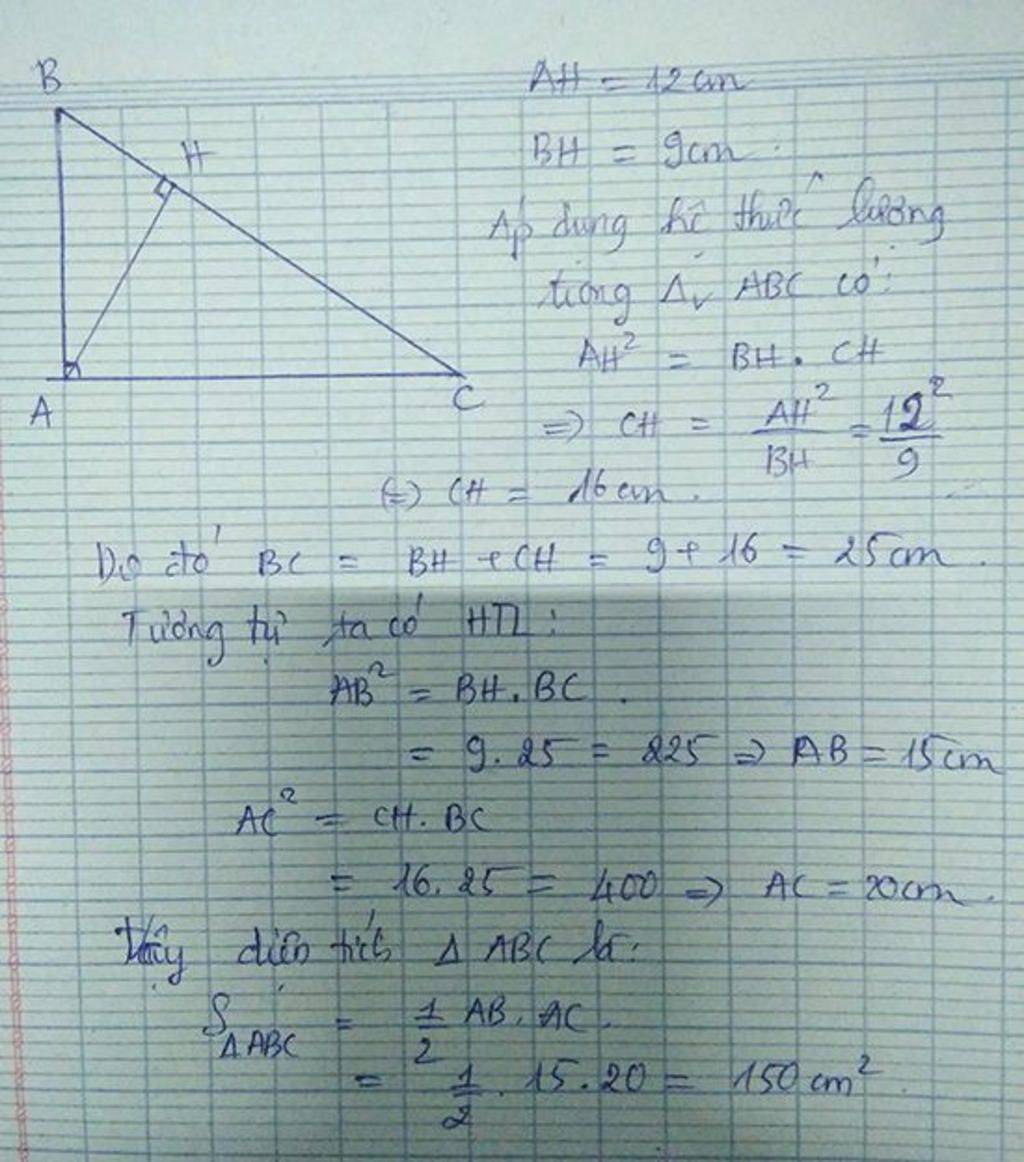 B
H
A
C
AH = 12cm
BH = 9cm.
Áp dụng hệ thức lượng
trong Δv ABC có:
AH² = BH . CH
=> CH = AH²/BH = 12²/9
(=) CH = 16cm.
Do đó BC = BH + CH = 9 + 16 = 25cm.
Tương tự ta có HTL:
AB² = BH . BC.
= 9 . 25 = 225 => AB = 15cm
AC² = CH . BC
= 16 . 25 = 400 => AC = 20cm.
Vậy diện tích Δ ABC là:
SΔABC = 1/2 AB . AC.
= 1/2 . 15 . 20 = 150 cm²